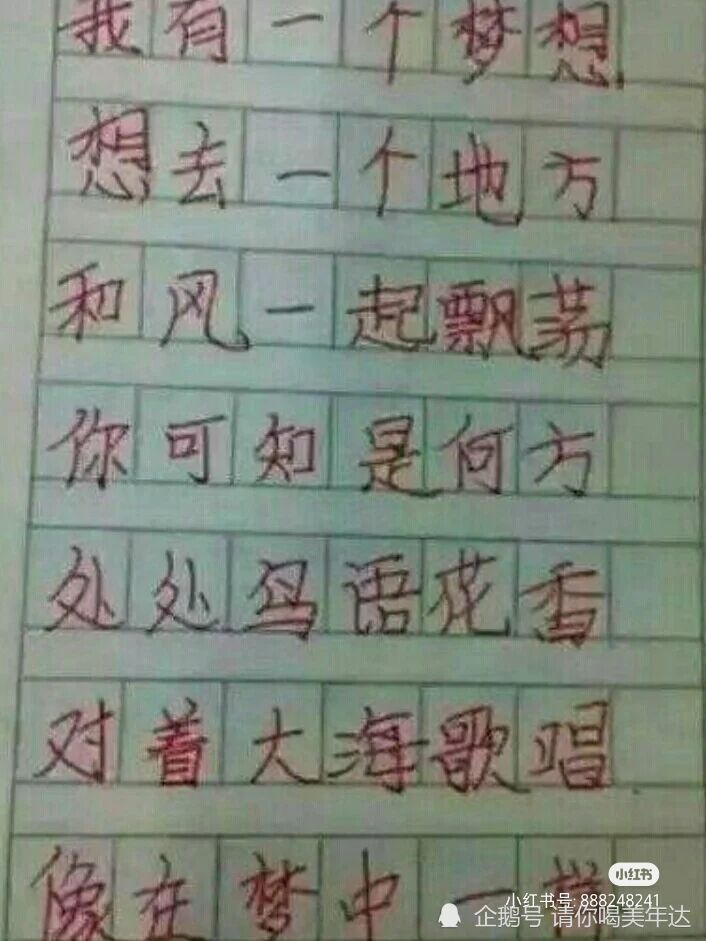 我有一个梦想
想去一个地方
和风一起飘荡
你可知是何方
处处鸟语花香
对着大海歌唱
像在梦中一样
小红书
小红书号: 888248241
企鹅号 请你喝美年达